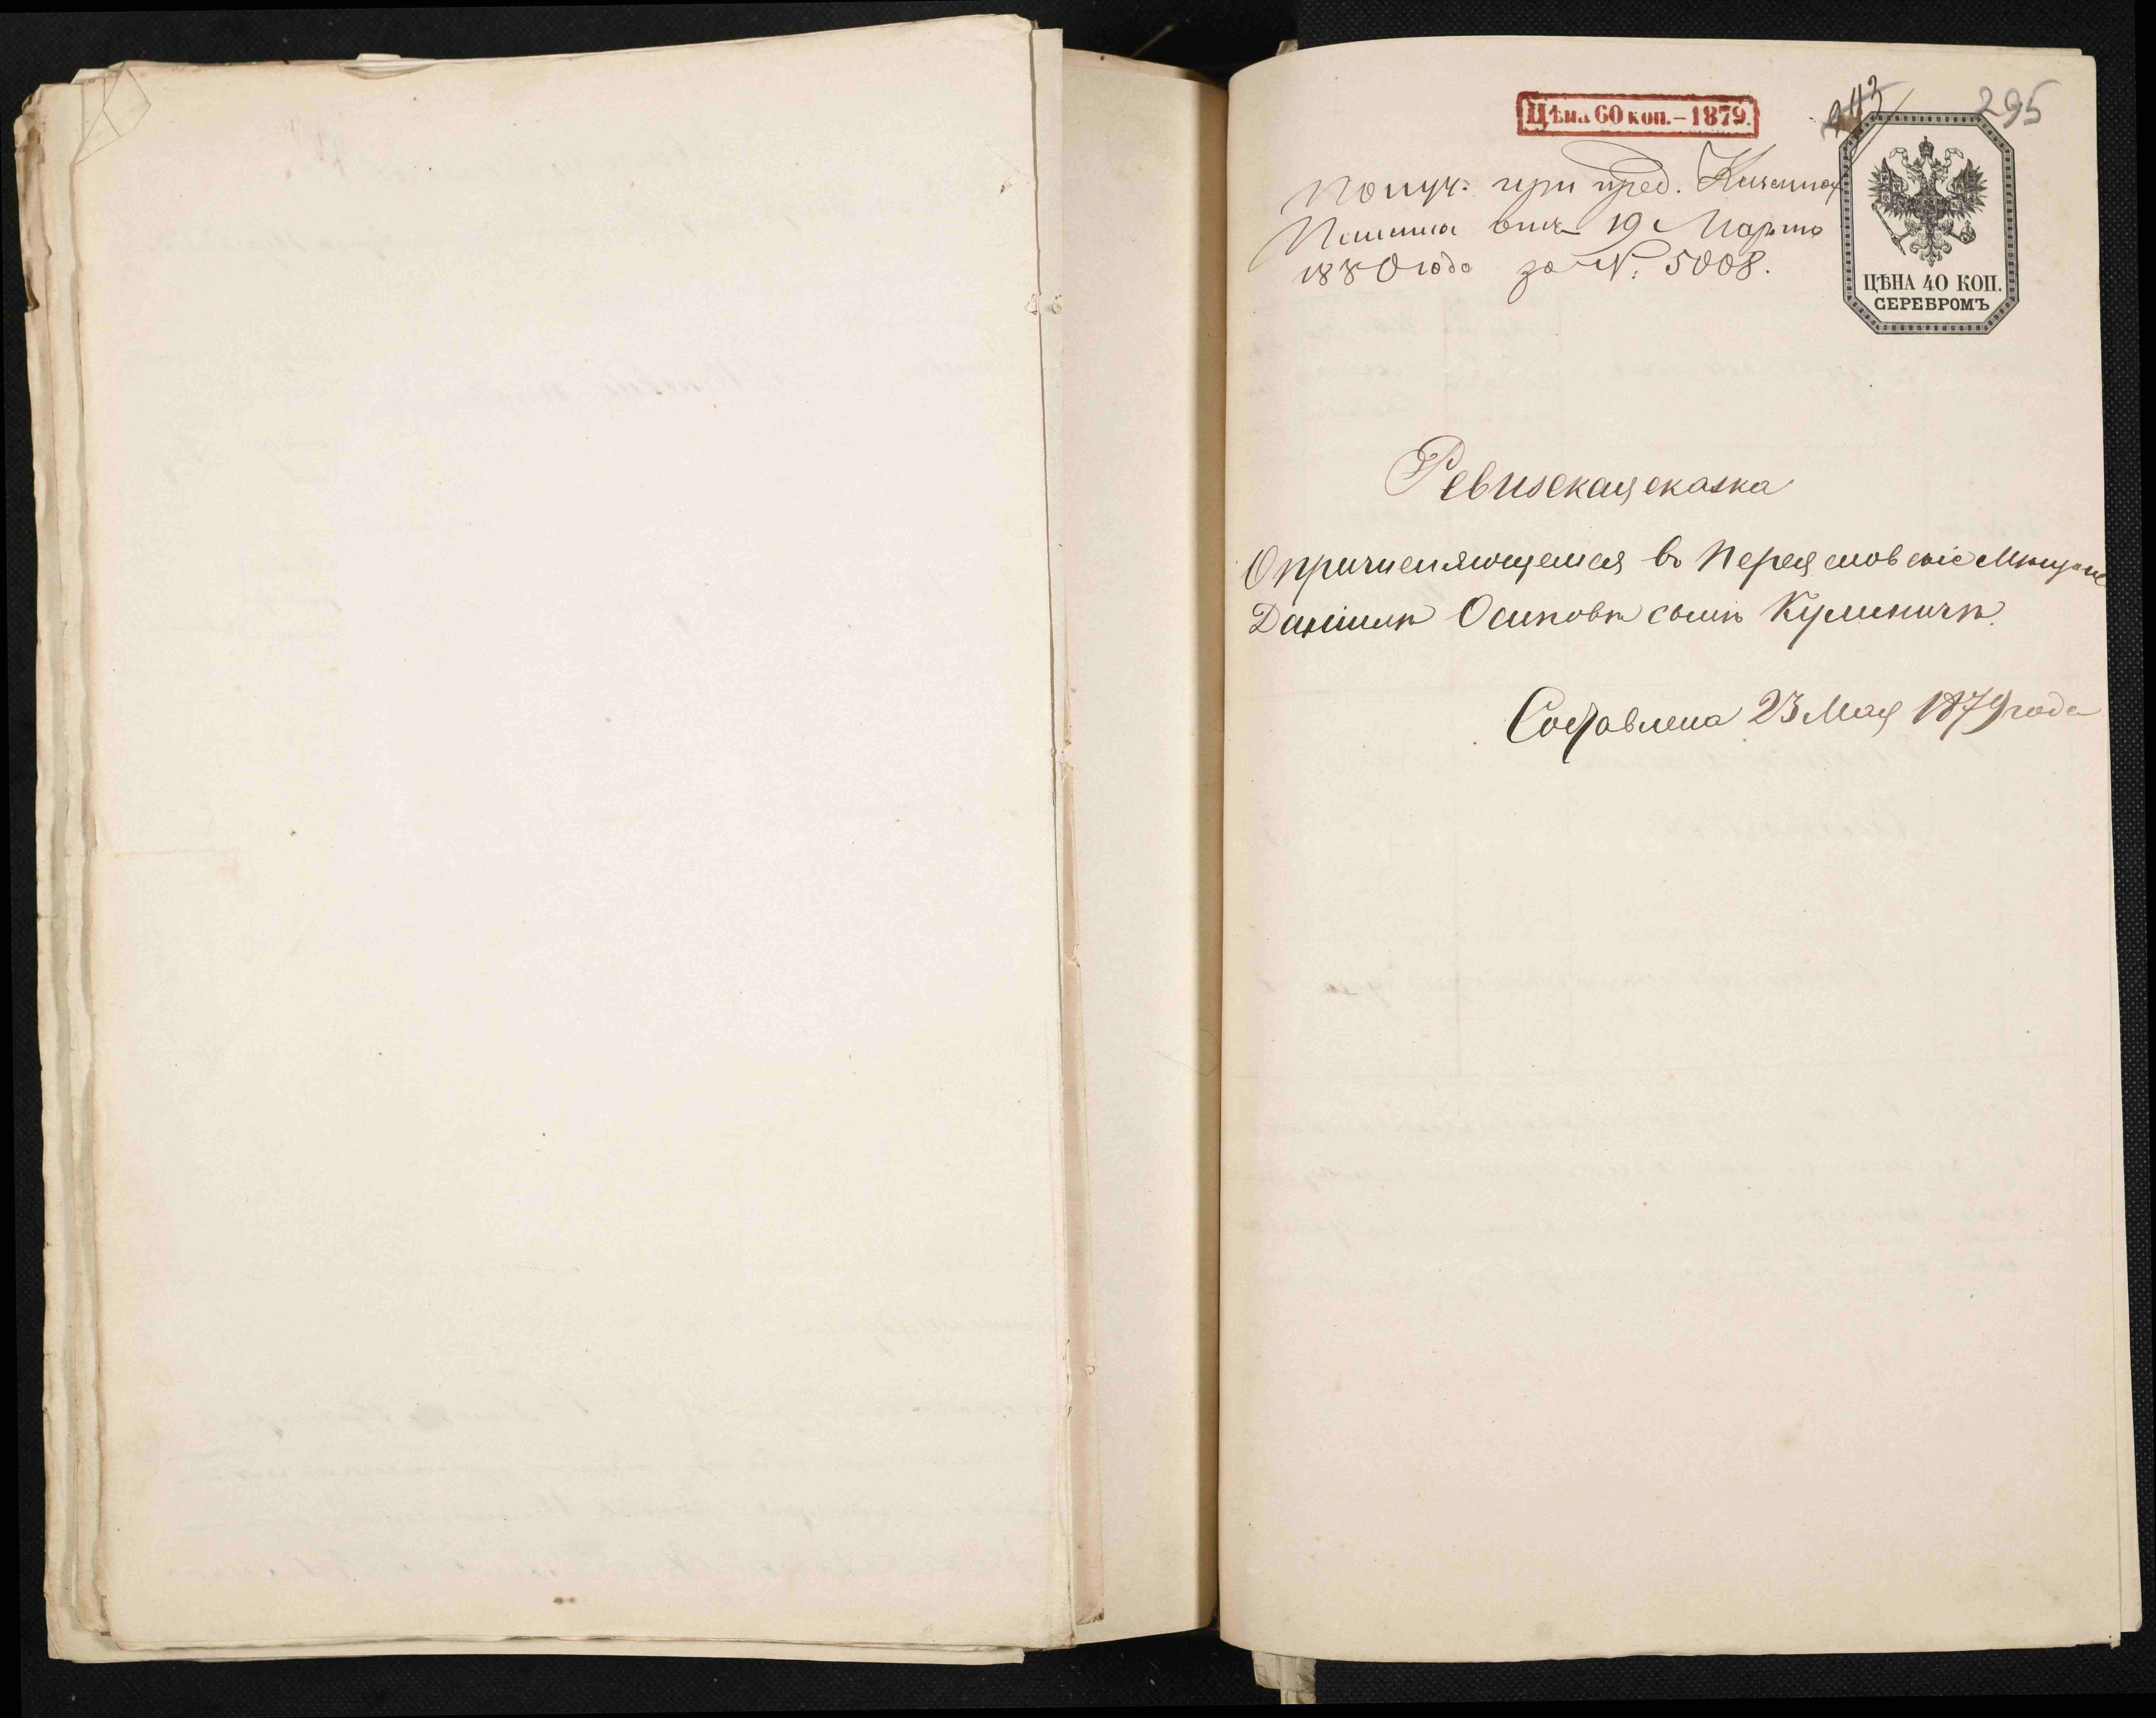 Цѣна 60 коп.–1879.
295
Получ. при пред. Казенной
Палаты отъ 19 Марта
1880 года за №. 5008.
ЦѢНА 40 КОП.
СЕРЕБРОМЪ
Ревизская сказка
О причисляющемся въ Переясловскіе Мѣщане
Даніилѣ Осиповѣ сынѣ Кулиничѣ.
Составлена 23 Мая 1879 года